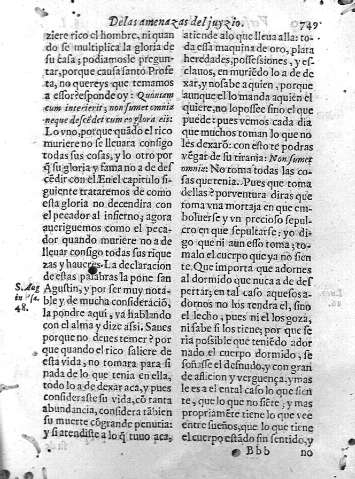 De las amenazas del juyzio.
749
ziere rico el hombre, ni quan
do se multiplica la gloria de
su casa; podiamosle pregun-
tar, porque causa santo Profe
ta, no quereys que temamos
a esso: responde oy: Quoniam
cum interierit, non sumet omnia
neque descẽdet cum eo gloria eius:
Lo vno, porque quãdo el rico
muriere no se lleuara consigo
todas sus cosas, y lo otro por
q̃ su gloria y fama no a de des
cẽdir con el. En el capitulo si-
guiente trataremos de como
esta gloria no decendira con
el pecador al infierno; agora
aueriguemos como el peca-
dor quando muriere no a de
lleuar consigo todas sus rique
zas y haueres. La declaracion
de estas palabras la pone san
Agustin, y por ser muy nota-
ble, y de mucha consideraciõ,
la pondre aqui, va hablando
con el alma y dize assi. Saues
porque no deues temer? por
que quando el rico saliere de
esta vida, no tomara para si
nada de lo que tenia en ella,
todo lo a de dexar aca, y pues
consideraste su vida, cõ tanta
abundancia, considera tãbien
su muerte cõ grande penuria:
y si atendiste a lo q̃ tuuo aca,
S. Aug
in Psa.
48.
atiende a lo que lleua alla: to-
da essa maquina de oro, plata
heredades, possessiones, y es-
clauos, en muriẽdo lo a de de-
xar, y no sabe a quien, porque
aunque el lo manda a quien el
quiere, no lo possee sino el que
puede: pues vemos cada dia
que muchos toman lo que no
les dexarõ: con esto te podras
vẽgar de su tirania: Non sumet
omnia: No toma todas las co-
sas que tenia. Pues que toma
dellas? por ventura diras que
toma vna mortaja en que em-
boluerse y vn precioso sepul-
cro en que sepultarse; yo di-
go que ni aun esso toma; to-
malo el cuerpo que ya no sien
te. Que importa que adornes
al dormido que nuca a de des
pertar; en tal caso aquesos a-
dornos no los tendra el, sino
el lecho, pues ni el los goza,
ni sabe si los tiene; por que se
ria posible que teniẽdo ador
nado el cuerpo dormido, se
soñasse el desnudo, y con gran
de aflicion y verguença, y mas
le es a el en tal caso lo que sien
te, que lo que no siẽte, y mas
propriamẽte tiene lo que vee
entre sueños, que lo que tiene
el cuerpo estãdo sin sentido, y
Bbb
no